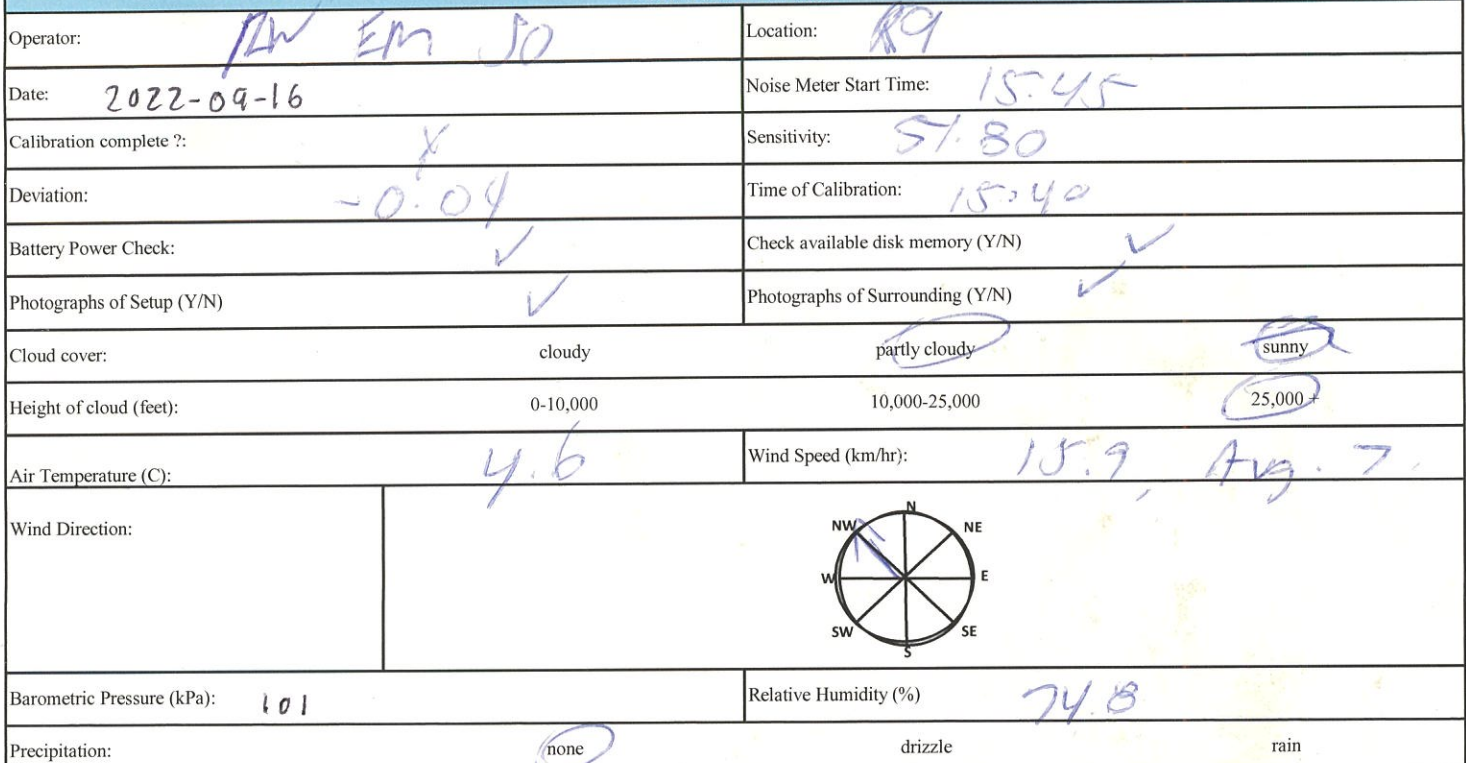 Operator: EM JO Location: R9
Date: 2022-09-16 Noise Meter Start Time: 15:45
Calibration complete ?: X Sensitivity: 51.80
Deviation: -0.04 Time of Calibration: 15:40
Battery Power Check: ✓ Check available disk memory (Y/N) ✓
Photographs of Setup (Y/N) ✓ Photographs of Surrounding (Y/N) ✓
Cloud cover: cloudy partly cloudy sunny
Height of cloud (feet): 0-10,000 10,000-25,000 25,000 +
Air Temperature (C): 4.6 Wind Speed (km/hr): 15.9, Avg. 7.
Wind Direction:
N
NW NE
W E
SW SE
S
Barometric Pressure (kPa): 101 Relative Humidity (%) 74.8
Precipitation: none drizzle rain